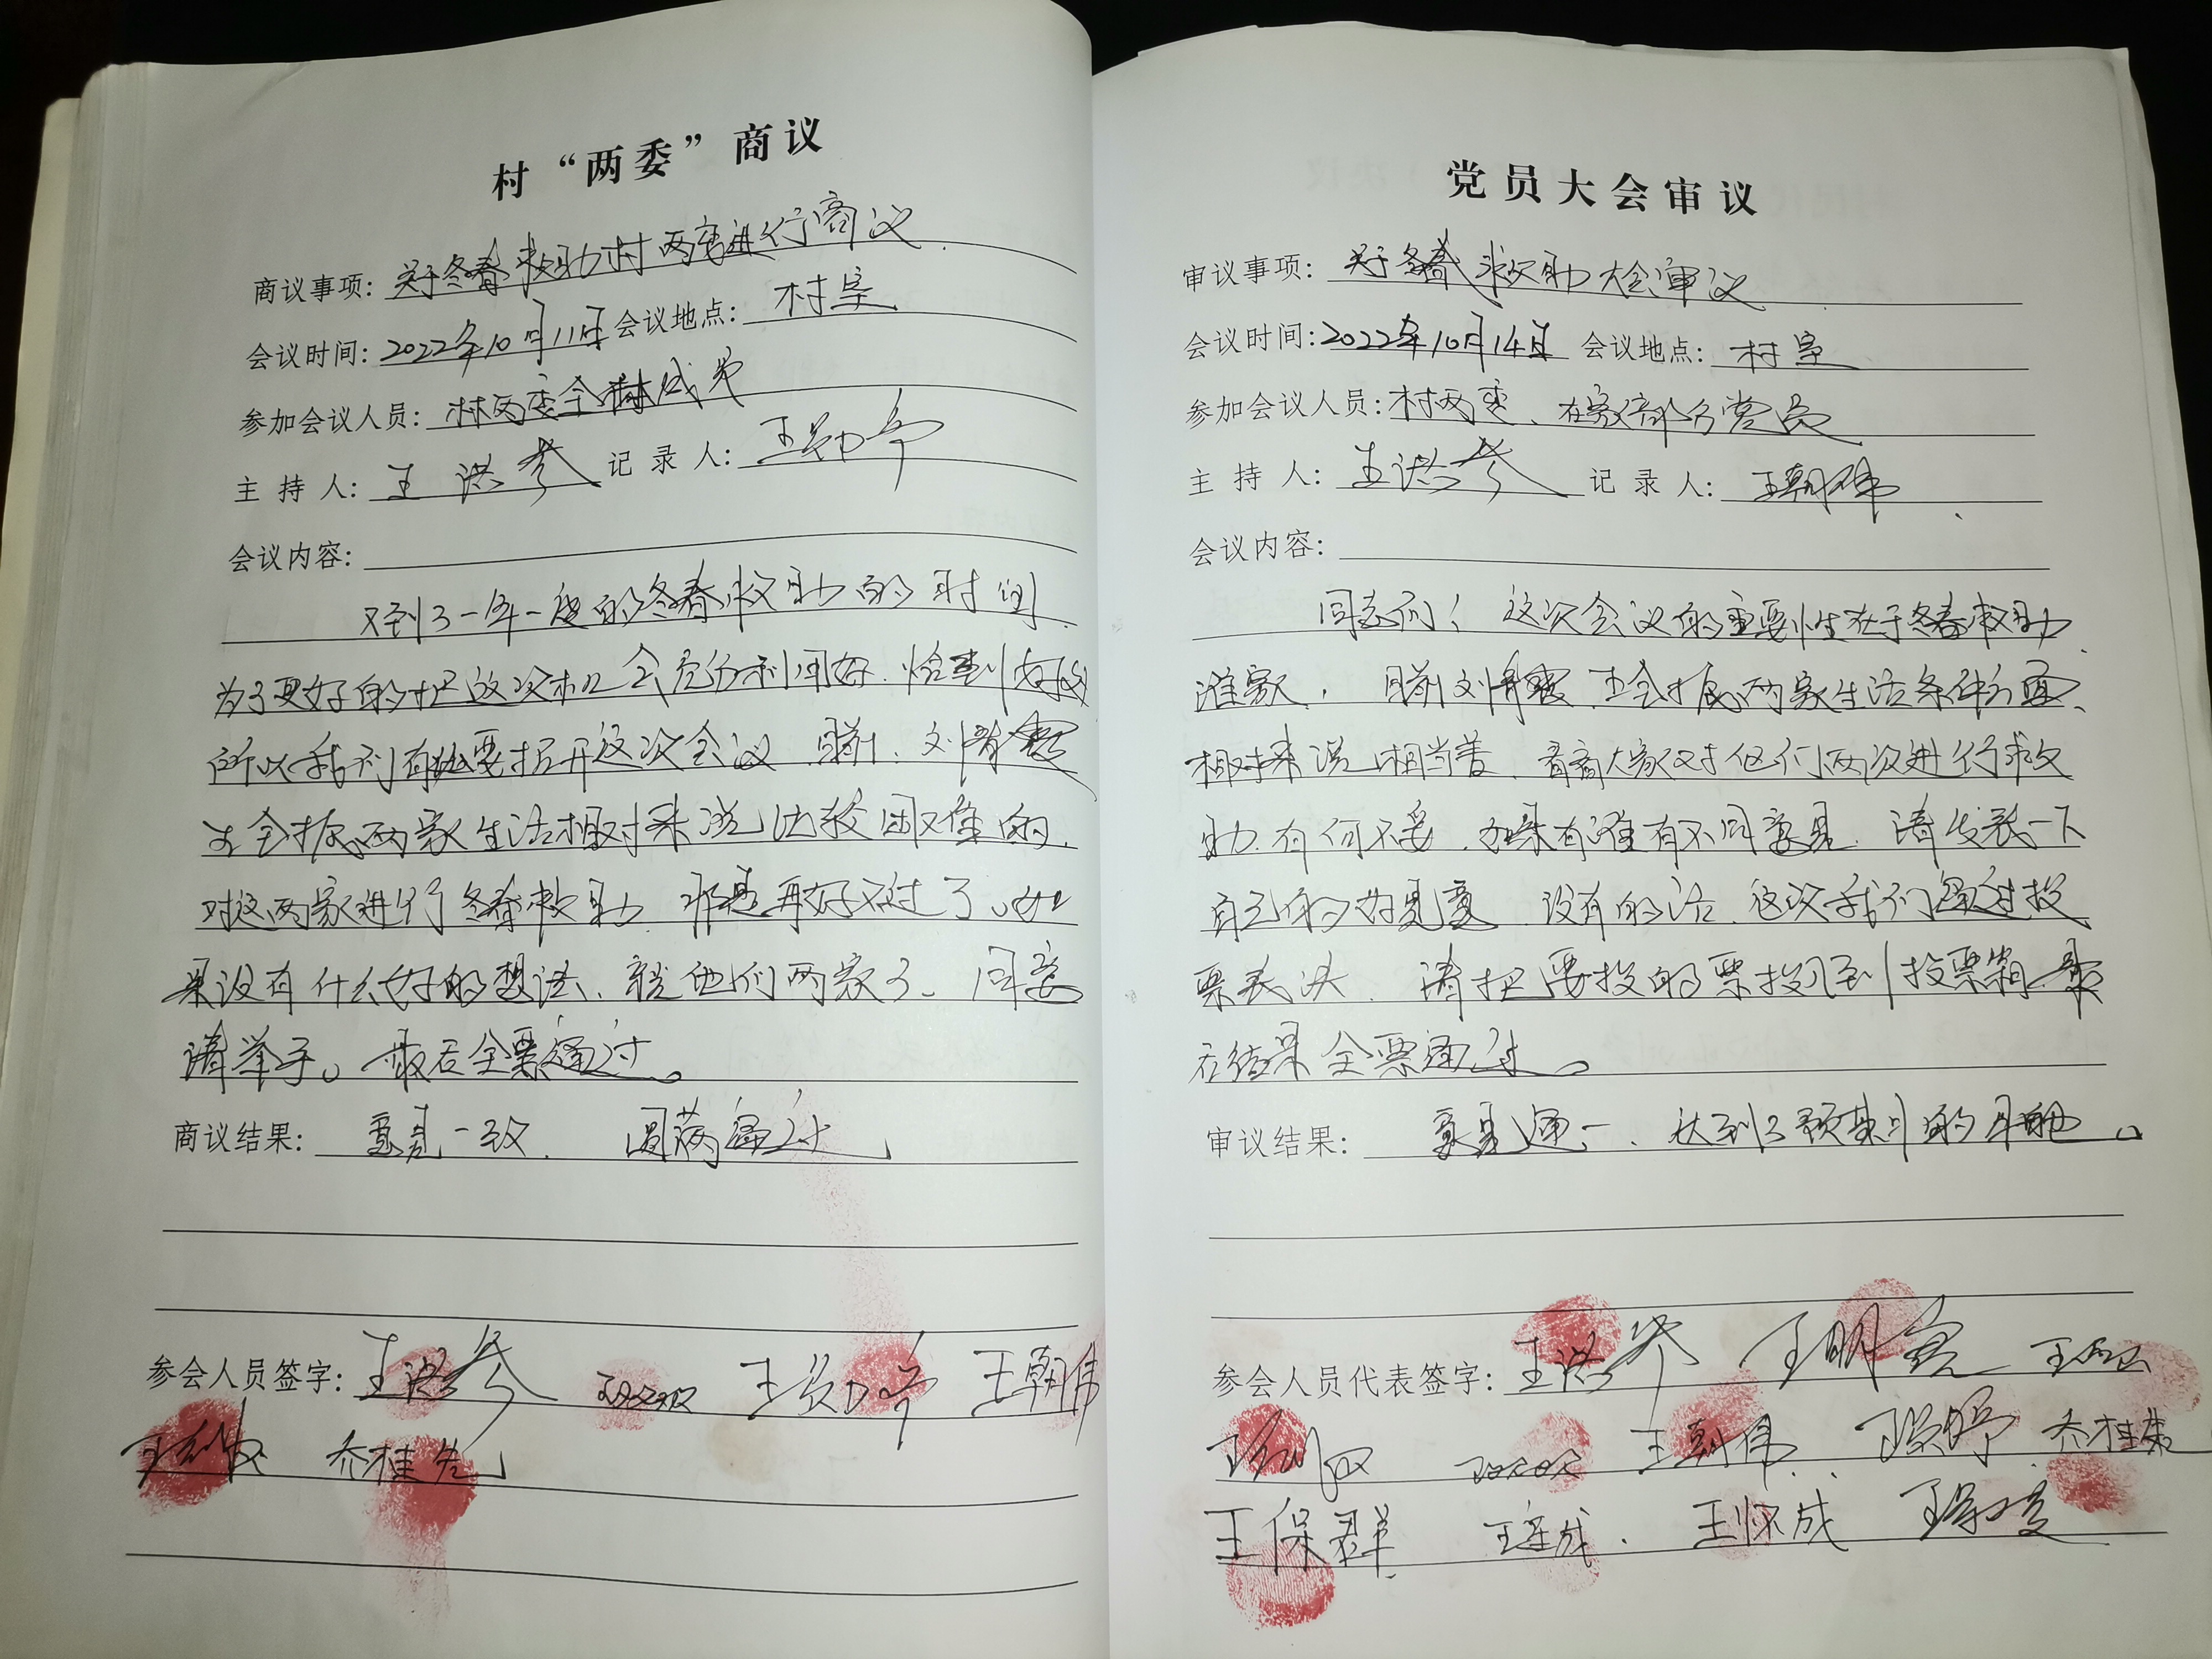 村“两委”商议
商议事项：关于冬春救助村两委进行商议.
会议时间：2022年10月11日 会议地点：村室
参加会议人员：村两委全体成员
主持人：王洪参 记录人：王
会议内容：
又到了一年一度的冬春救助的时间.
为了更好的把这次机会充份利用好.恰到好处
所以我们有必要招开这次会议.目前.刘青霞
王全振两家生活相对来说比较困难的.
对这两家进行冬春救助.那是再好不过了。如
果没有什么好的想法、就他们两家了。同意
请举手。最后全票通过。
商议结果：意见一致.圆满通过
参会人员签字：王洪参 王朝伟
乔桂
党员大会审议
审议事项：关于冬春救助大会审议
会议时间：2022年10月14日 会议地点：村室
参加会议人员：村两委、在家部分党员
主持人：王洪参 记录人：王朝伟
会议内容：
同志们！这次会议的重要性在于冬春救助
谁家，目前刘青霞.王全振两家生活条件方面、
相对来说相当差、看看大家对他们两家进行救
助.有何不妥.如果有谁有不同意见.请发表一下
自己的好见意.没有的话.这次我们通过投
票表决.请把要投的票投入到投票箱.最
后结果全票通过。
审议结果：意见统一、达到了预期的目地。
参会人员代表签字：王洪参 王明亮
王朝伟 乔桂
王保群 王连成. 王怀成